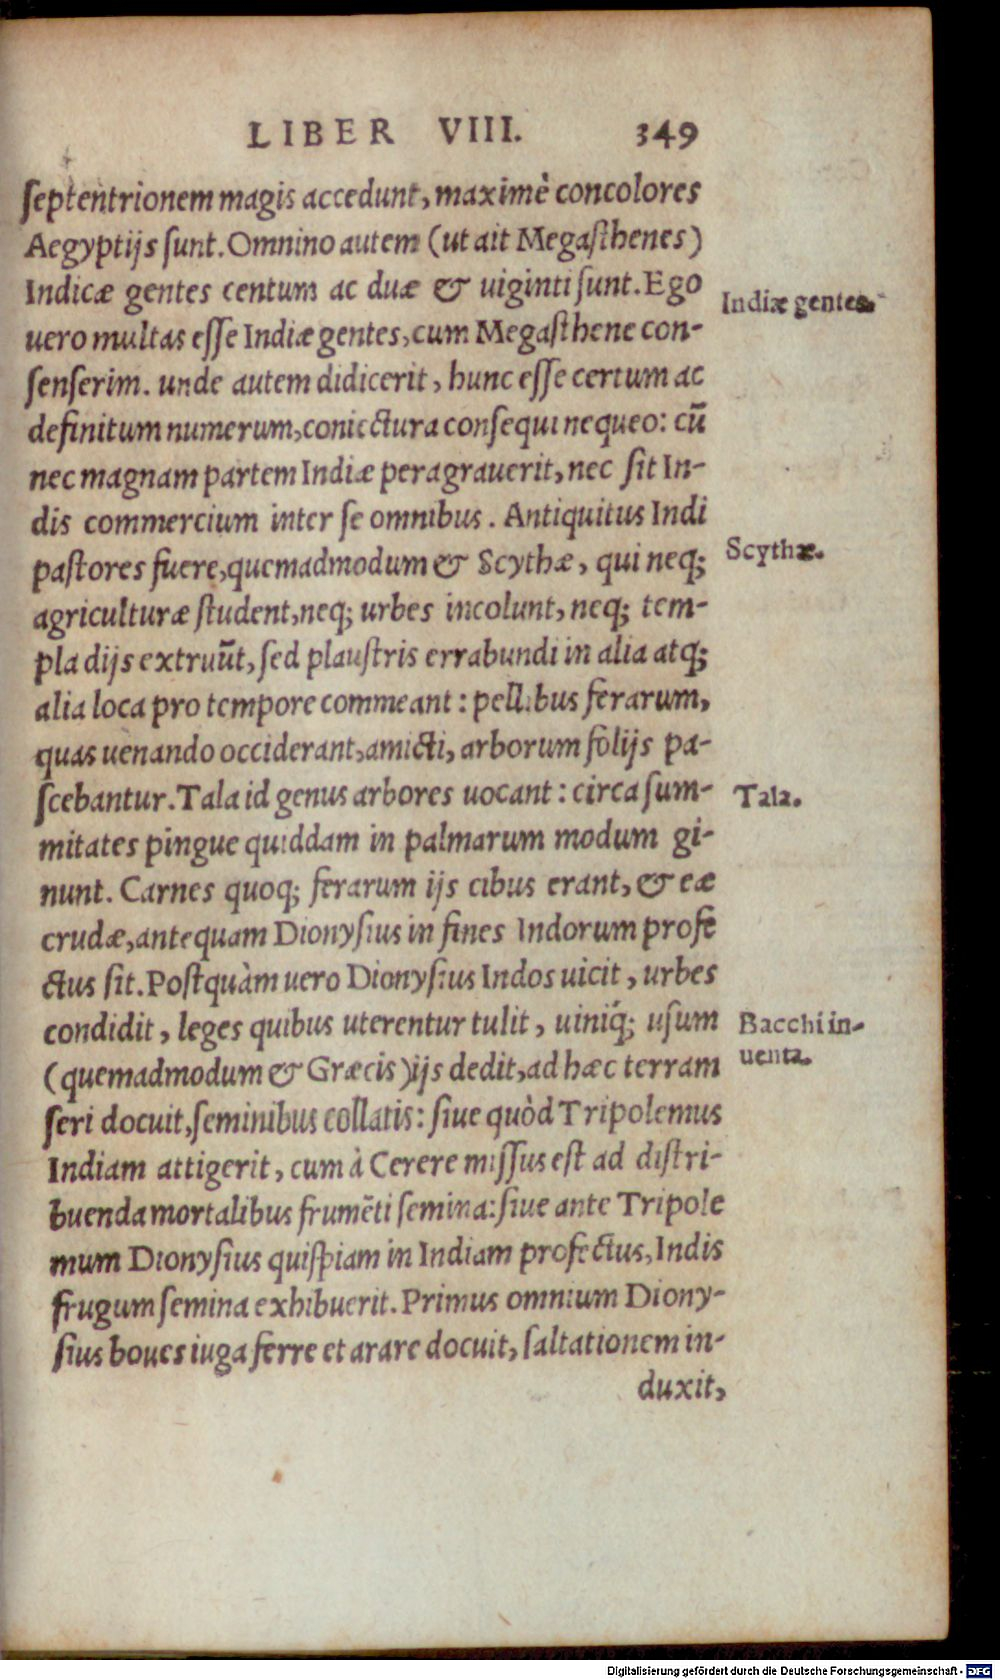 LIBER VIII. 349
septentrionem magis accedunt, maximè concolores
Aegyptijs sunt. Omnino autem (ut ait Megasthenes)
Indicæ gentes centum ac duæ & uiginti sunt. Ego
Indiæ gentes.
uero multas esse Indiæ gentes, cum Megasthene con-
senserim. unde autem didicerit, hunc esse certum ac
definitum numerum, coniectura consequi nequeo: cū
nec magnam partem Indiæ peragrauerit, nec sit In-
dis commercium inter se omnibus. Antiquitus Indi
pastores fuere, quemadmodum & Scythæ, qui neq;
Scythæ.
agriculturæ student, neq; urbes incolunt, neq; tem-
pla dijs extruūt, sed plaustris errabundi in alia atq;
alia loca pro tempore commeant: pellibus ferarum,
quas uenando occiderant, amicti, arborum folijs pa-
scebantur. Tala id genus arbores uocant: circa sum-
Tala.
mitates pingue quiddam in palmarum modum gi-
nunt. Carnes quoq; ferarum ijs cibus erant, & eæ
crudæ, antequam Dionysius in fines Indorum profe
ctus sit. Postquàm uero Dionysius Indos uicit, urbes
condidit, leges quibus uterentur tulit, uiniq́; usum
Bacchi in-
uenta.
(quemadmodum & Græcis) ijs dedit, ad hæc terram
seri docuit, seminibus collatis: siue quòd Tripolemus
Indiam attigerit, cum à Cerere missus est ad distri-
buenda mortalibus frumēti semina: siue ante Tripole
mum Dionysius quispiam in Indiam profectus, Indis
frugum semina exhibuerit. Primus omnium Diony-
sius boues iuga ferre et arare docuit, saltationem in-
duxit,
Digitalisierung gefördert durch die Deutsche Forschungsgemeinschaft - DFG